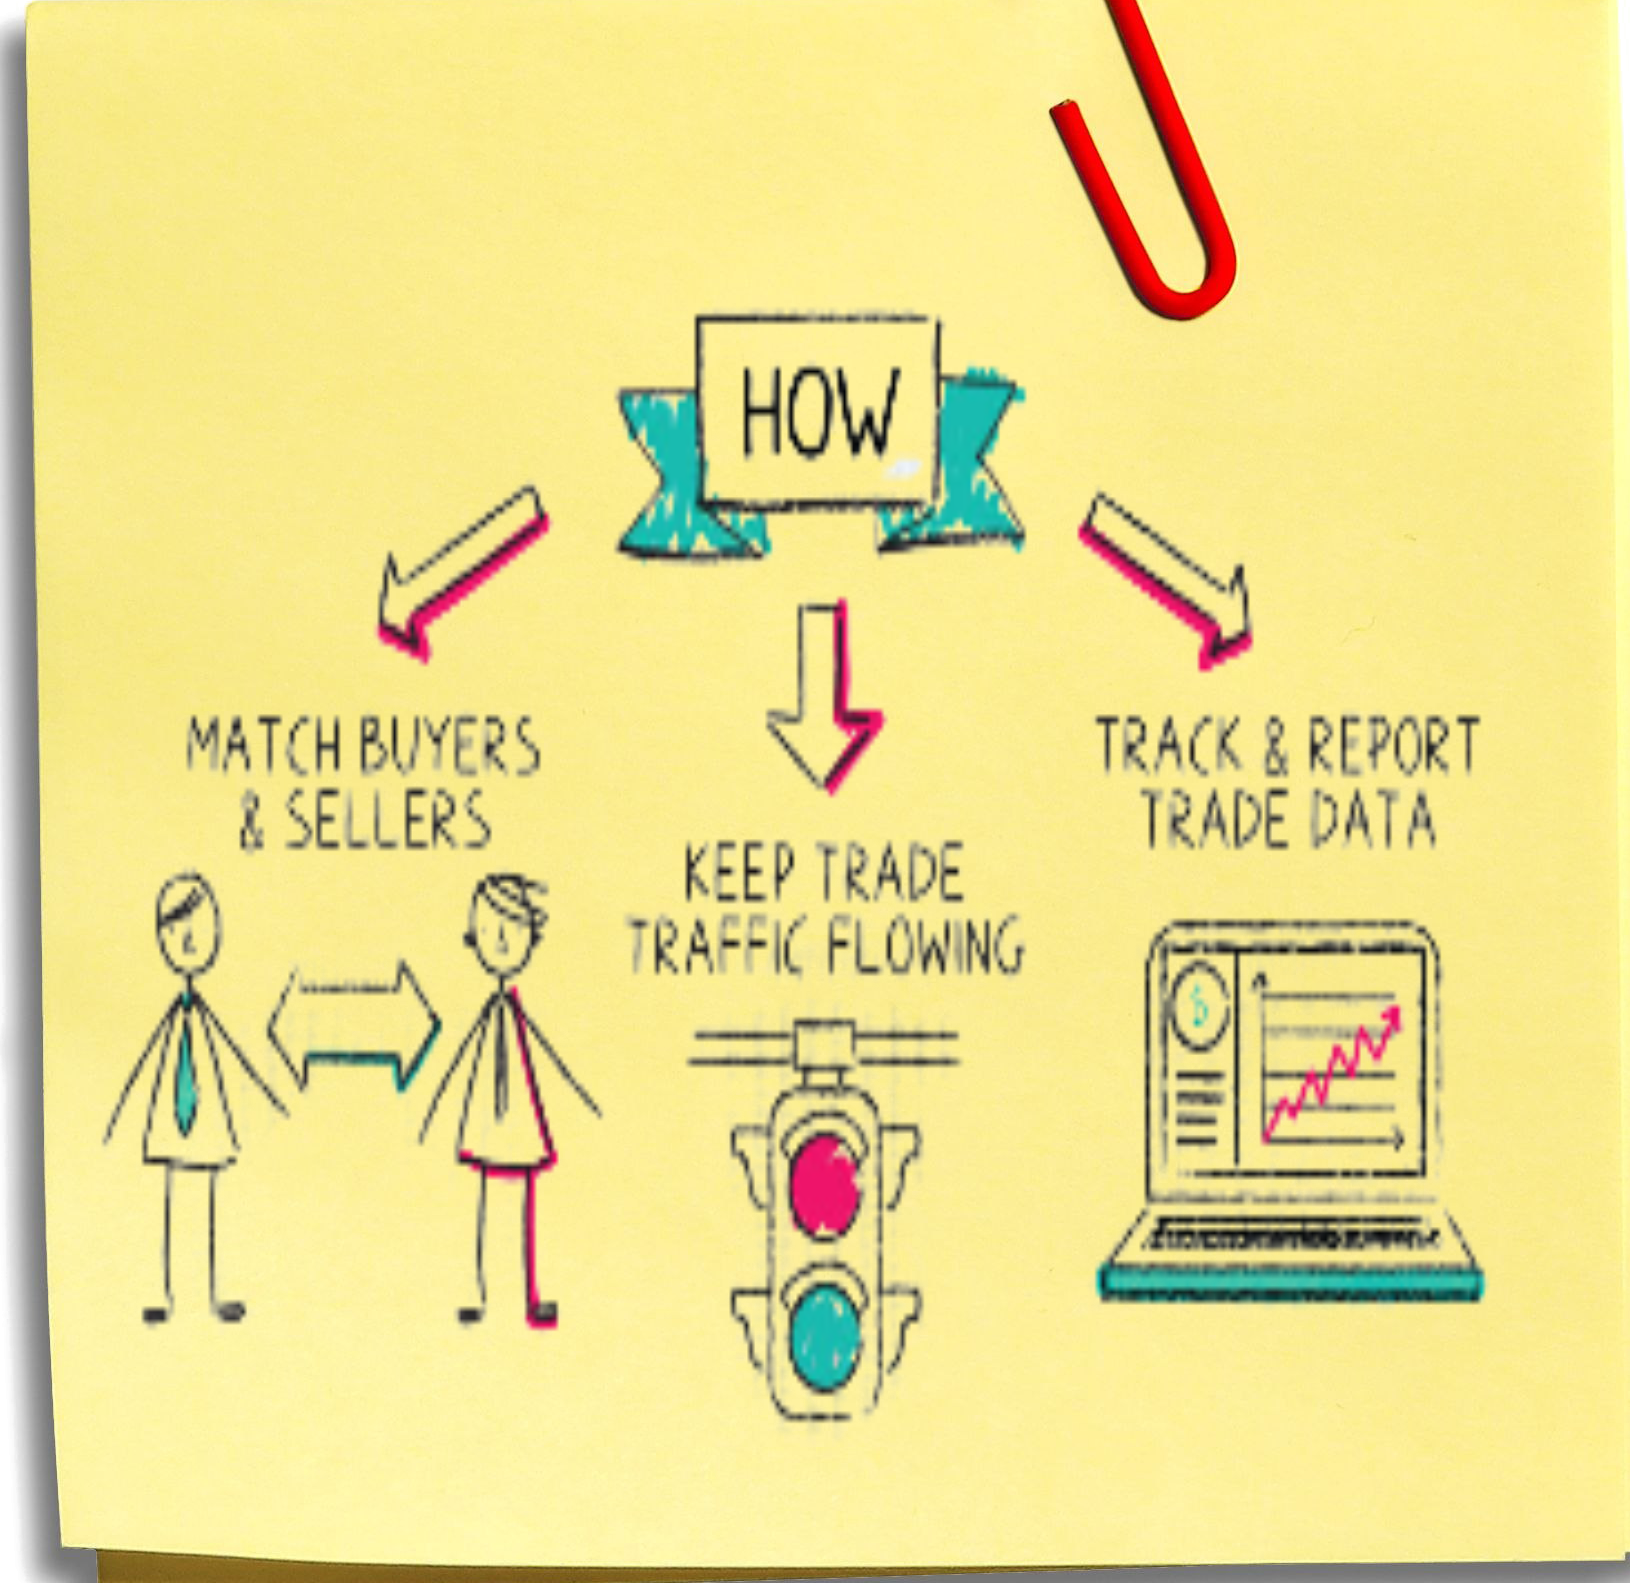 HOW
MATCH BUYERS
& SELLERS
KEEP TRADE
TRAFFIC FLOWING
TRACK & REPORT
TRADE DATA
$